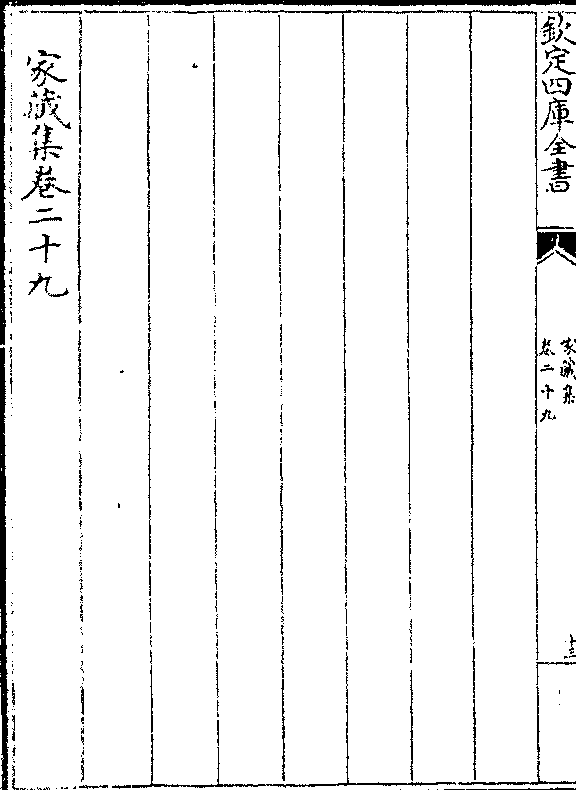 欽定四庫全書
家藏集
卷二十九
家藏集卷二十九